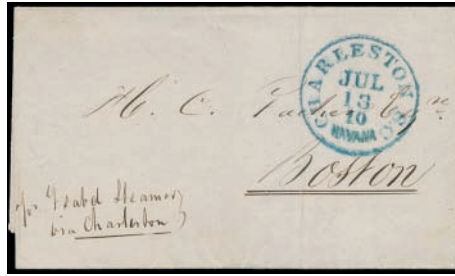 CHARLESTON S.C.
JUL
13
10
HAVANA
H. C.
Boston
pr Isabel Steamer
via Charleston